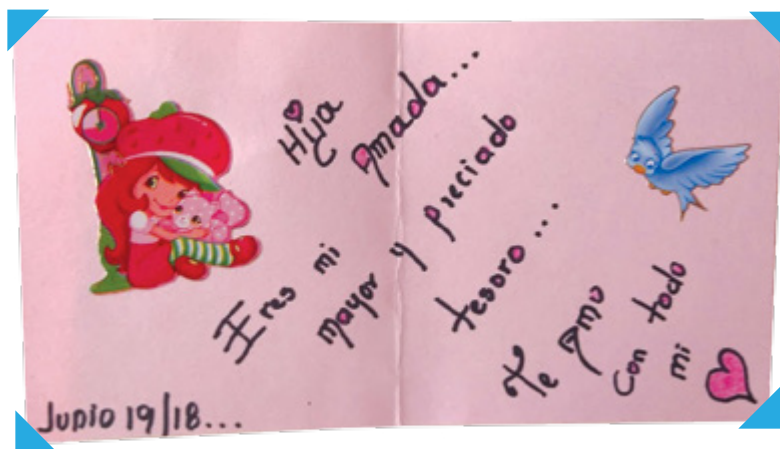 Hija
Amada...
Eres mi
mayor y preciado
tesoro...
Te Amo
con todo
mi
Junio 19/18...